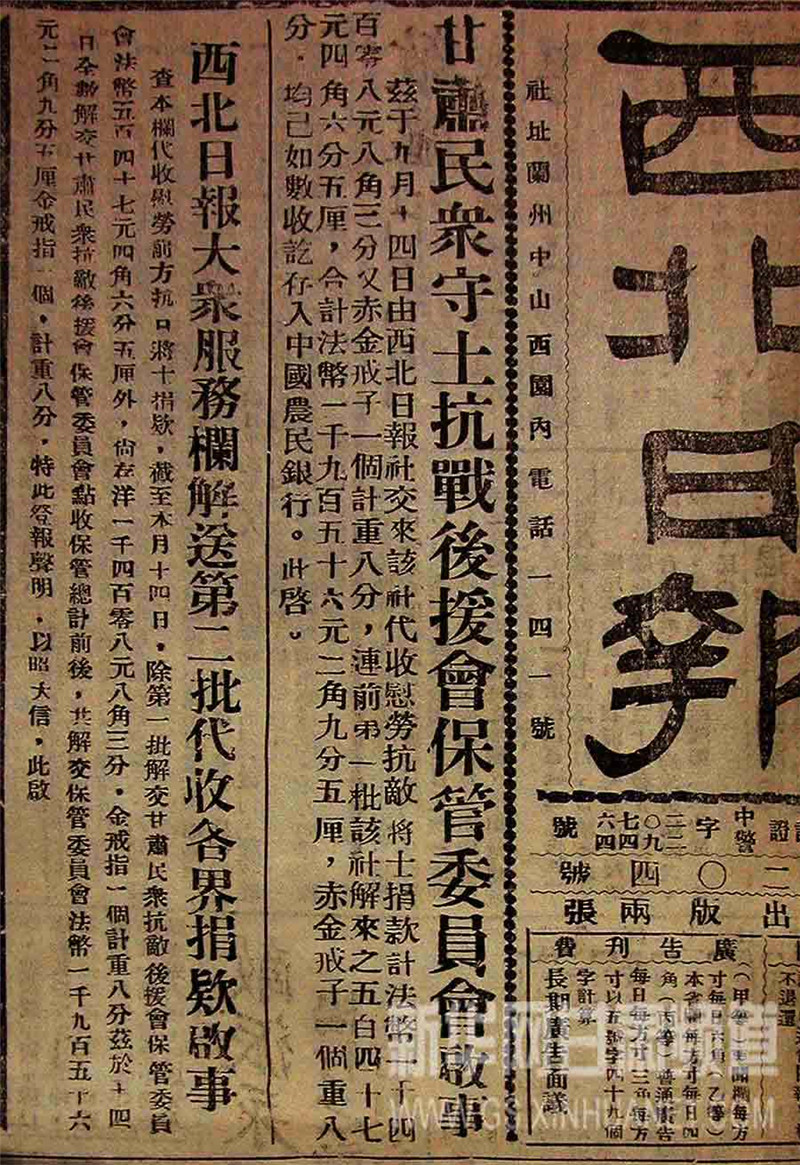 西北日報
社址蘭州中山西園內電話一四一號
中警字
號
二〇四號
出版兩張
廣告刊費
長期廣告面議
甘肅民衆守土抗戰後援會保管委員會啟事
茲于九月十四日由西北日報社交來該社代收慰勞抗敵將士捐款計法幣一千四
百零八元八角三分又赤金戒子一個計重八分，連前第一批該社解來之五百四十七
元四角六分五厘，合計法幣一千九百五十六元二角九分五厘，赤金戒子一個重八
分．均已如數收訖存入中國農民銀行。此啓。
西北日報大衆服務欄解送第二批代收各界捐欵啟事
查本欄代收慰勞前方抗日將士捐欵，截至本月十四日．除第一批解交甘肅民衆抗敵後援會保管委員
會法幣五百四十七元四角六分五厘外，尙存洋一千四百零八元八角三分．金戒指一個計重八分茲於十四
日全數解交甘肅民衆抗敵後援會保管委員會點收保管總計前後，共解交保管委員會法幣一千九百五十六
元二角九分五厘金戒指一個．計重八分．特此登報聲明．以昭大信．此啟